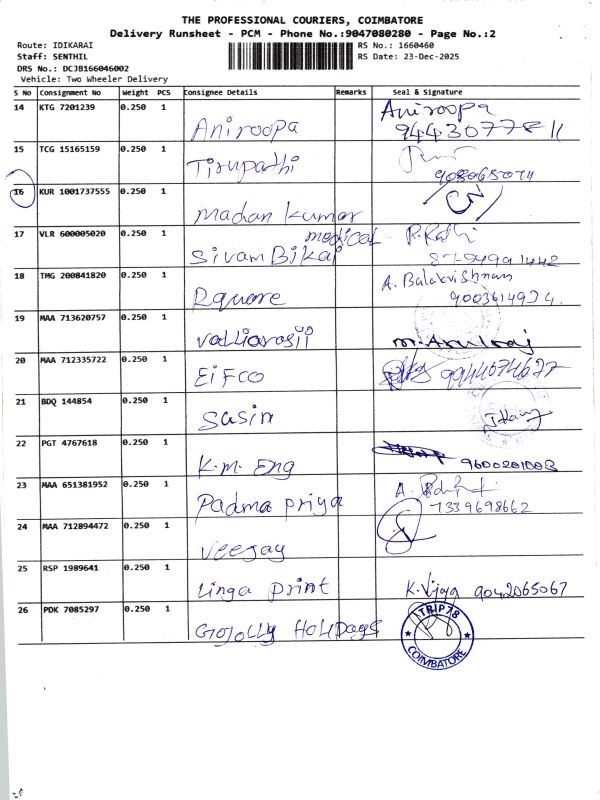 THE PROFESSIONAL COURIERS, COIMBATORE
Delivery Runsheet - PCM - Phone No.:9047080280 - Page No.:2
Route: IDIKARAI RS No.: 1660460
Staff: SENTHIL RS Date: 23-Dec-2025
DRS No.: DCJB166046002
Vehicle: Two Wheeler Delivery
S No Consignment No Weight PCS Consignee Details Remarks Seal & Signature
14 KTG 7201239 0.250 1 Aniroopa Aniroopa
15 TCG 15165159 0.250 1 Tirupathi
16 KUR 1001737555 0.250 1 Madan kumar
17 VLR 600005020 0.250 1 Sivam Bikaj medical
18 TMG 200841820 0.250 1 Rquare A. Balakrishnan
9003614934.
19 MAA 713620757 0.250 1 Valliarasii
20 MAA 712335722 0.250 1 EIFCO 9944674677
21 BDQ 144854 0.250 1 Sasin
22 PGT 4767618 0.250 1 K.M. Eng 9600201003
23 MAA 651381952 0.250 1 Padma priya
7339698662
24 MAA 712894472 0.250 1 Veejay
25 RSP 1989641 0.250 1 Linga print K. Vijaya 9042065067
26 PDK 7085297 0.250 1 GOJOLLY HOLIDAYS TRIP78
COIMBATORE